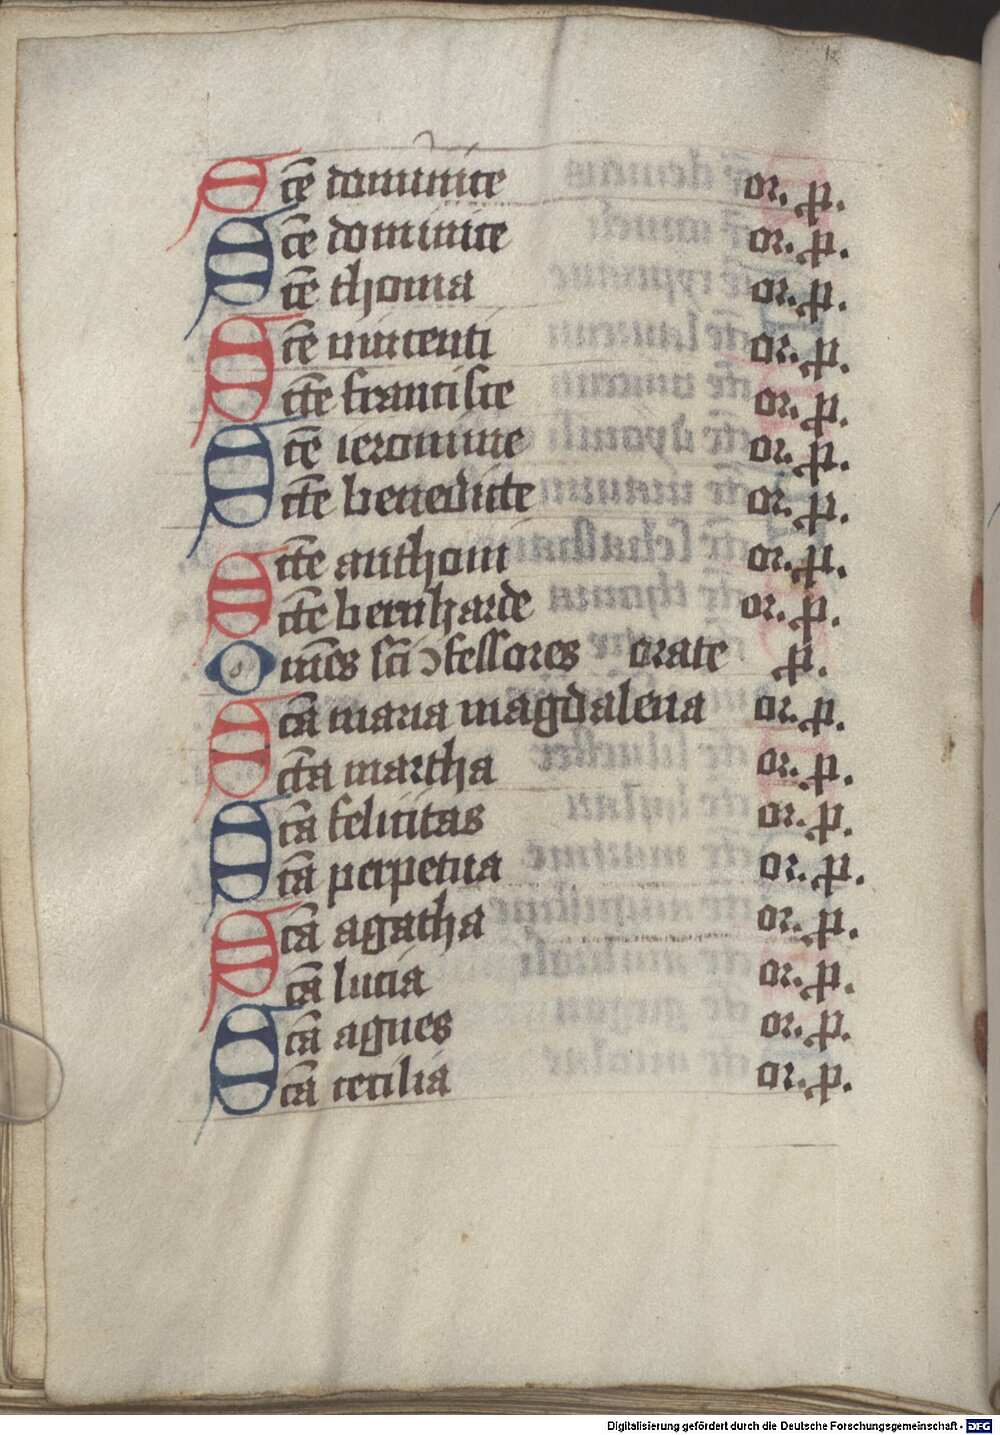 Sc̄e dominice or. p.
Sc̄e dominice or. p.
Sc̄e thoma or. p.
Sc̄e vincenti or. p.
Sct̄e francisce or. p.
Sc̄e ieronime or. p.
Sct̄e benedicte or. p.
Sct̄e anthoni or. p.
Sct̄e bernharde or. p.
Om̄es sc̄i ↄfessores orate p.
Sc̄a maria magdalena or. p.
Sct̄a martha or. p.
Sc̄a felicitas or. p.
Sc̄a perpetua or. p.
Sc̄a agatha or. p.
Sc̄a lucia or. p.
Sc̄a agnes or. p.
Sc̄a cecilia or. p.
Digitalisierung gefördert durch die Deutsche Forschungsgemeinschaft - DFG